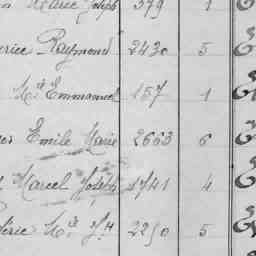 Marie Joseph 379 1
Raymond 2430 5
Mie Emmanuel 157 1
Emile Marie 2663 6
Marcel Joseph 1741 4
Mie Jh 2250 5